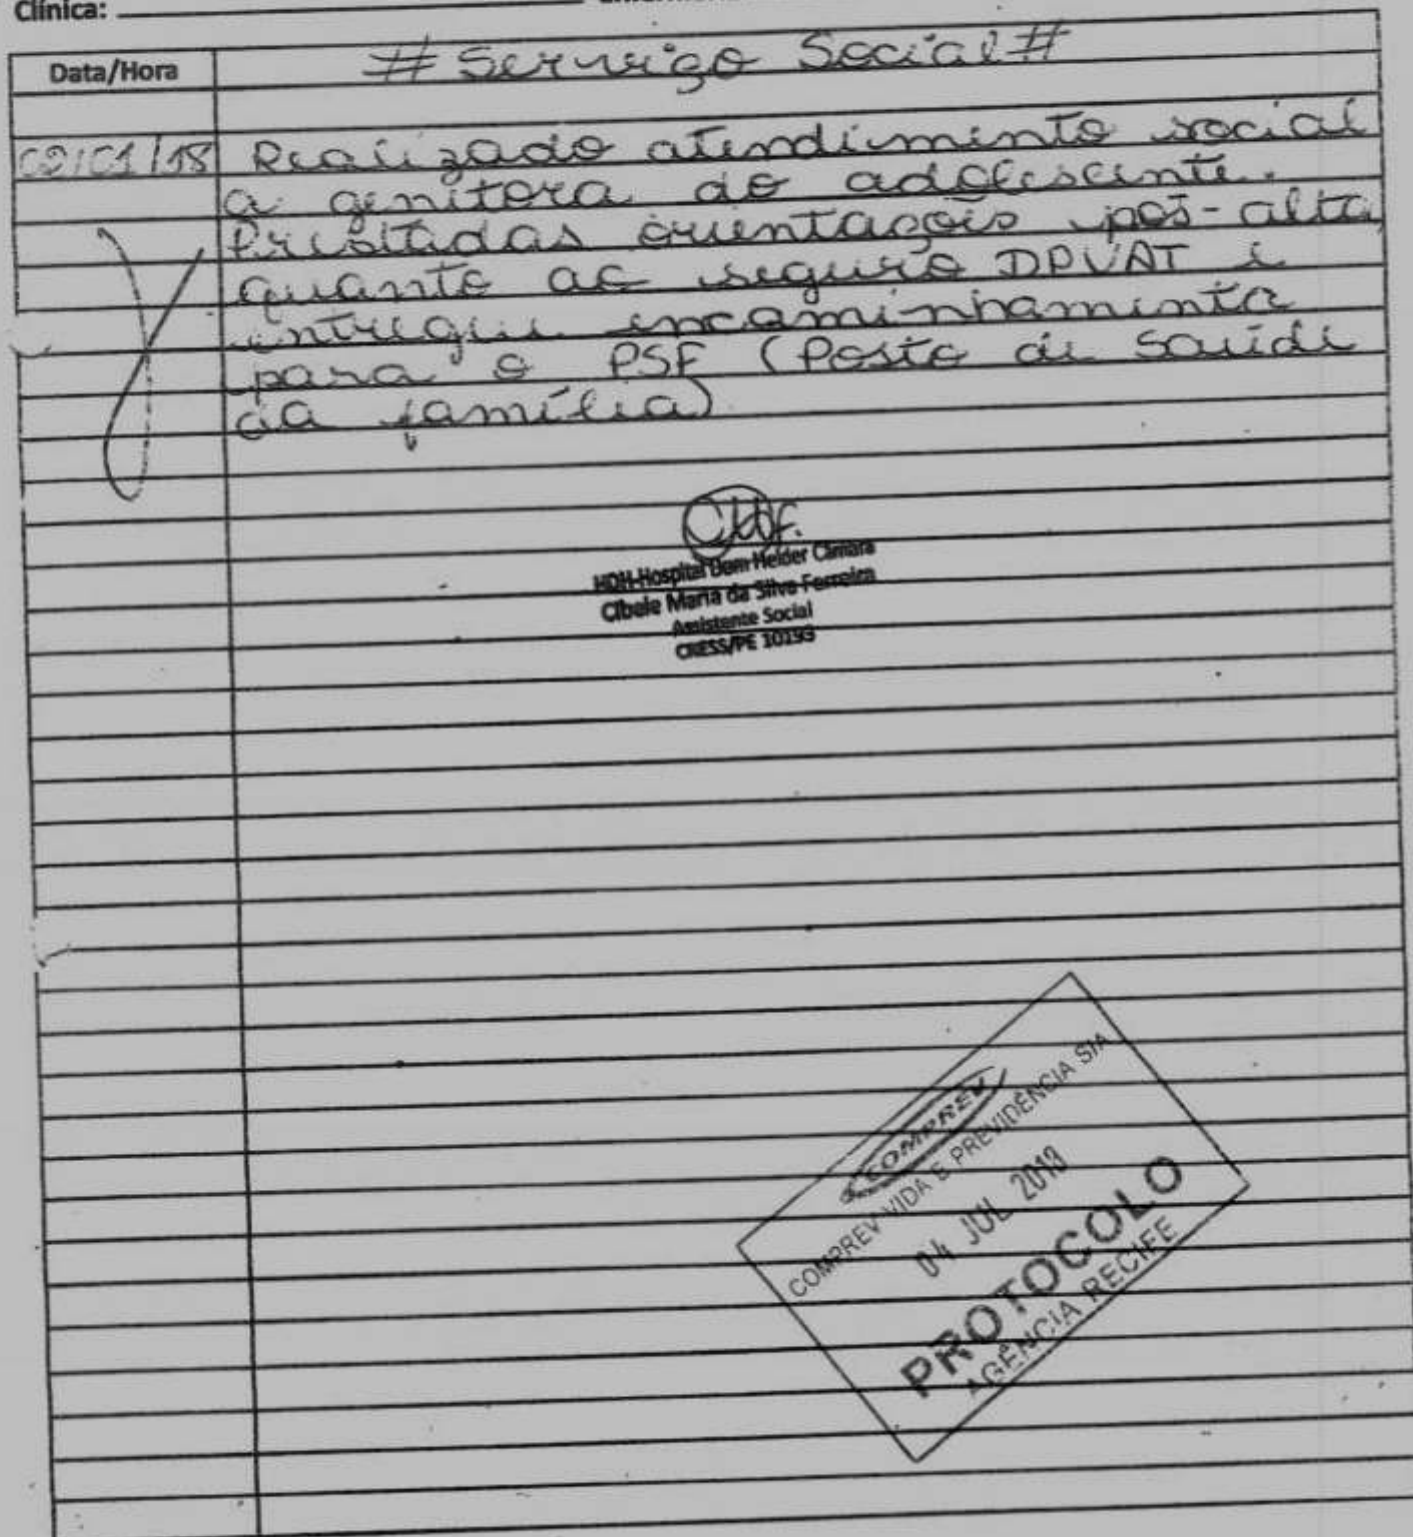 Clínica:
# Serviço Social #
Data/Hora
02/01/18 Realizado atendimento social
a genitora do adolescente.
Prestadas orientações pós-alta,
quanto ao seguro DPVAT e
entregue encaminhamento
para o PSF (Posto de Saúde
da família)
HDH-Hospital Dom Helder Câmara
Cibele Maria da Silva Ferreira
Assistente Social
CRESS/PE 10193
COMPREV
COMPREV VIDA E PREVIDÊNCIA S/A
04 JUL 2018
PROTOCOLO
AGÊNCIA RECIFE